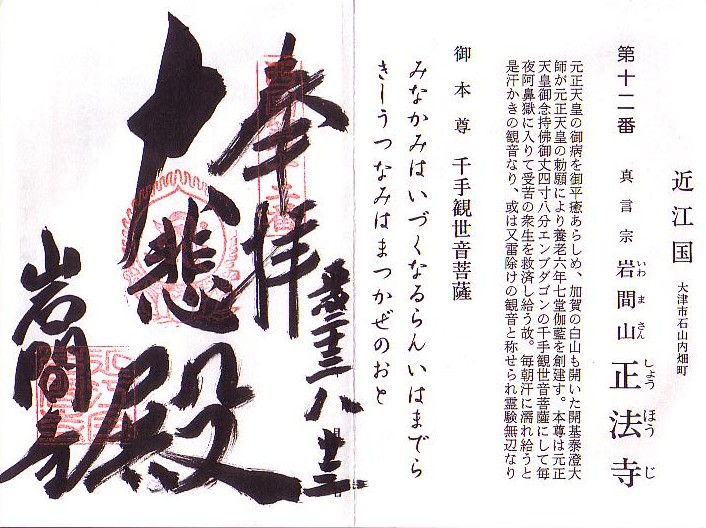 近江国 大津市石山内畑町
第十二番 真言宗 岩間山 正法寺
いわ ま さん しょう ほう じ
元正天皇の御病を御平癒あらしめ、加賀の白山も開いた開基泰澄大
師が元正天皇の勅願により養老六年七堂伽藍を創建す。本尊は元正
天皇御念持佛御丈四寸八分エンブダゴンの千手観世音菩薩にして毎
夜阿鼻獄に入りて受苦の衆生を救済し給う故。毎朝汗に濡れ給うと
是汗かきの観音なり、或は又雷除けの観音と称せられ霊験無辺なり
御本尊 千手観世音菩薩
みなかみはいづくなるらんいはまでら
きしうつなみはまつかぜのおと
奉拝
大悲殿
岩間寺